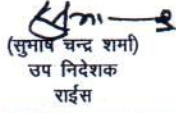 (सुभाष चन्द्र शर्मा)
उप निदेशक
राईस